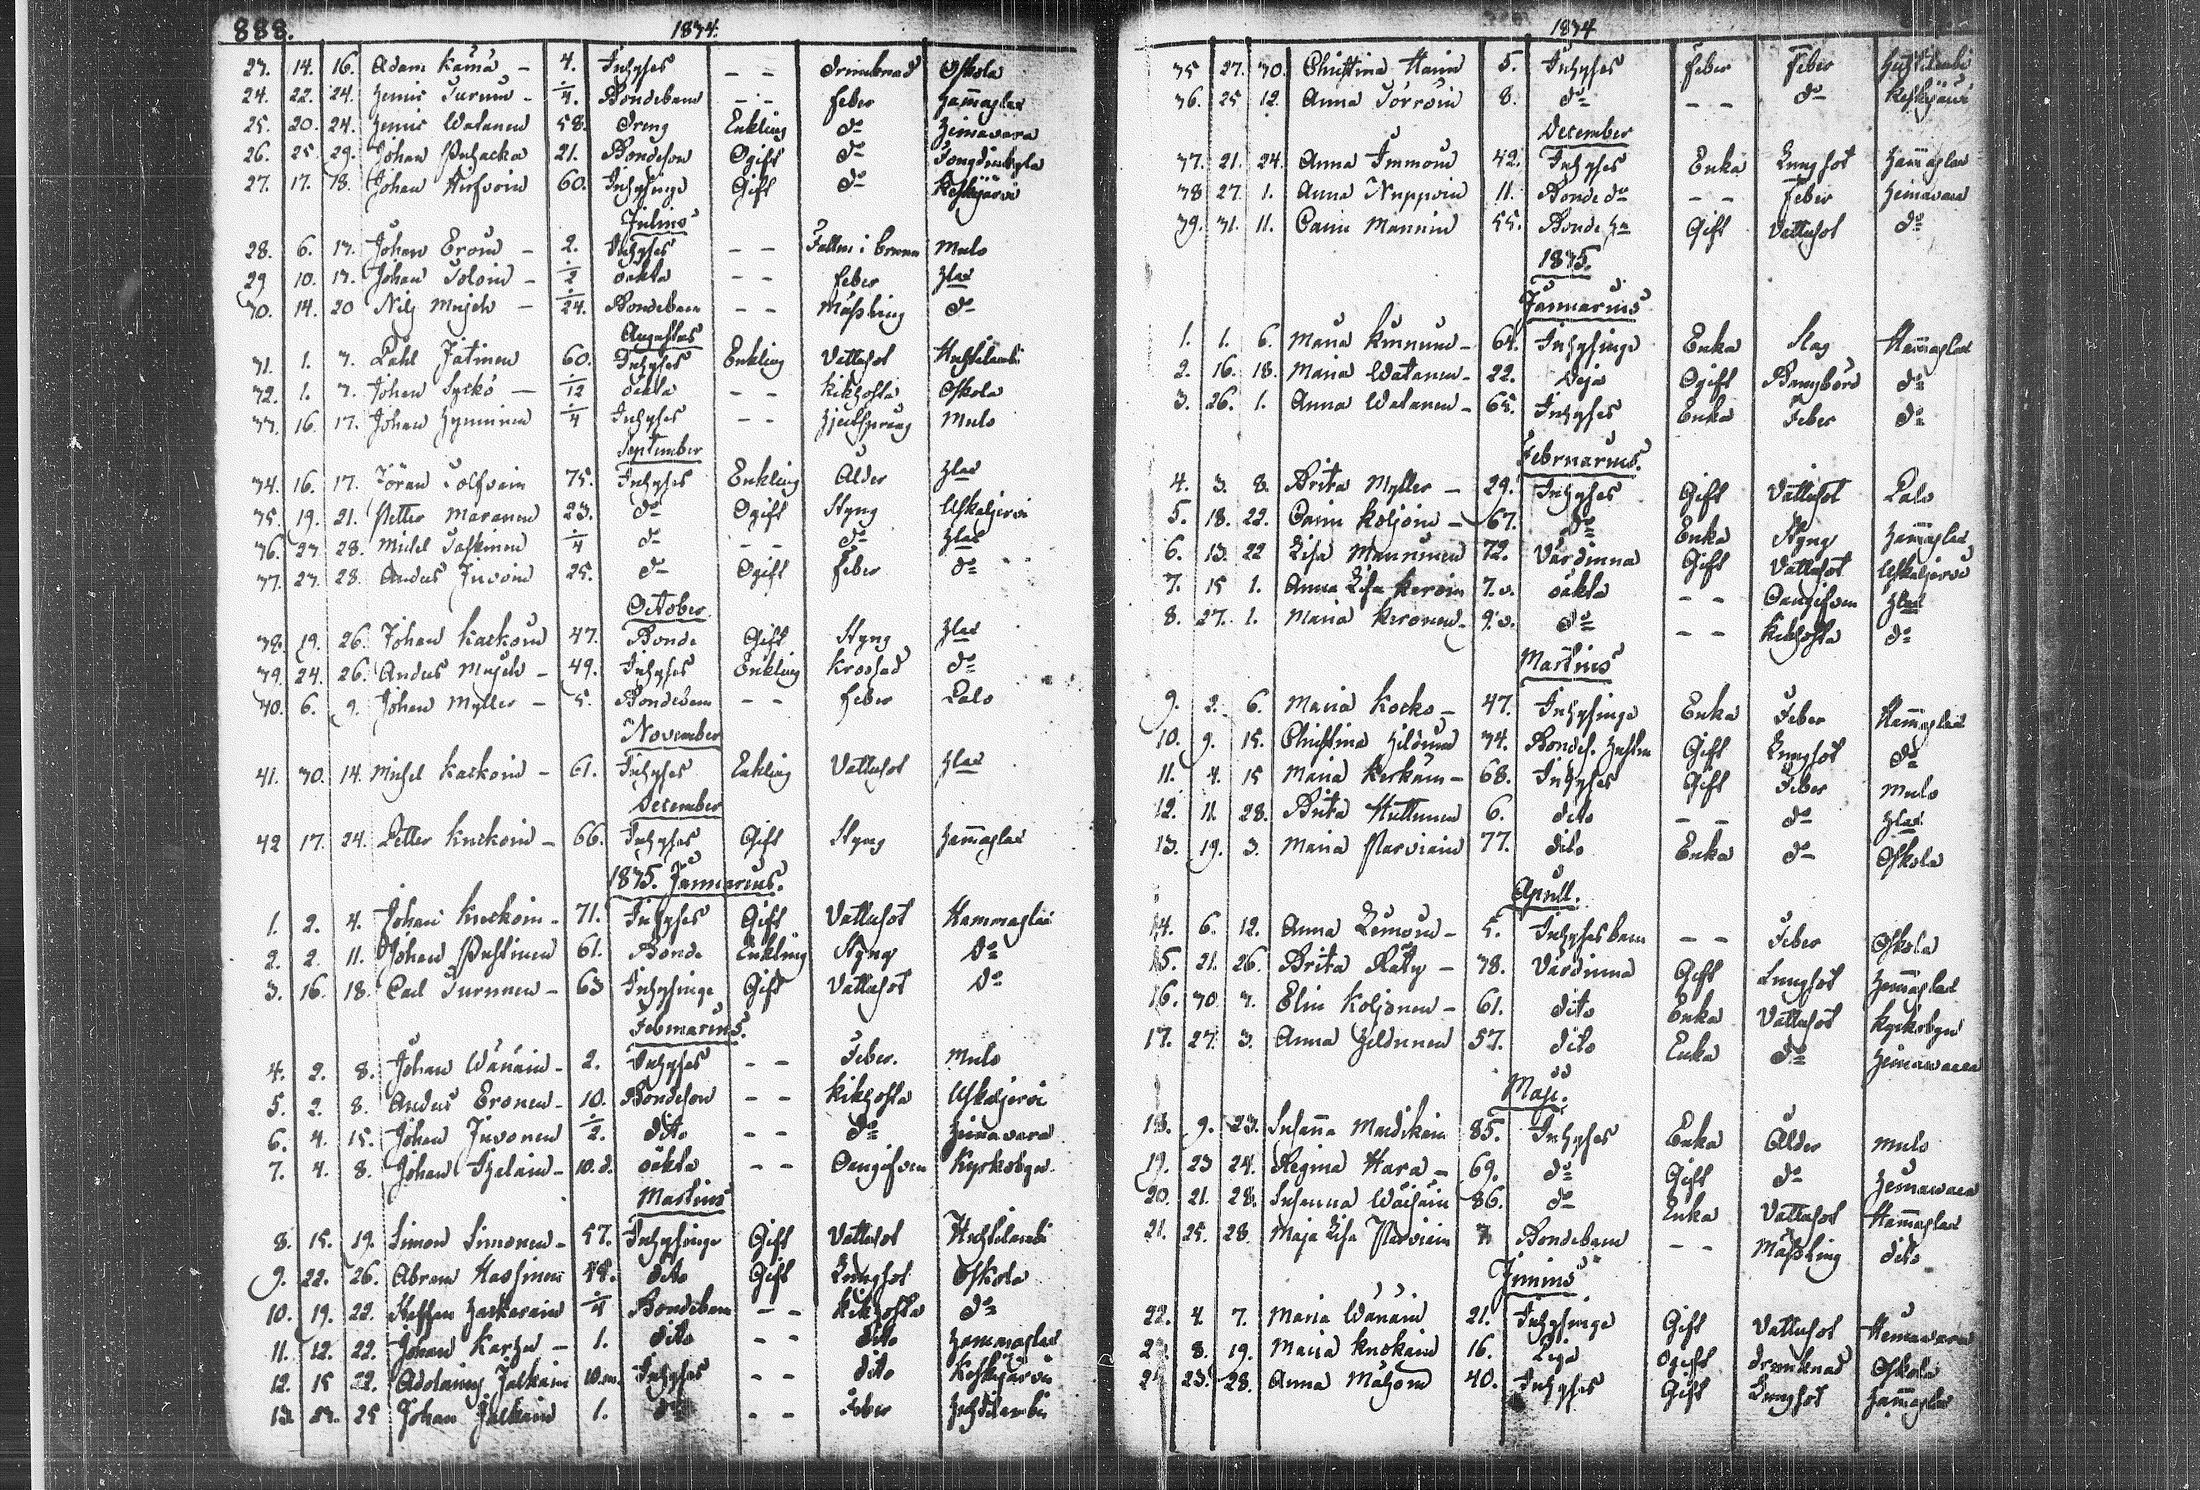 888. 1834.
23. 14. 16. Adam Kaima — 4. Inhyses — — Drunknad Oskola
24. 22. 24. Henric Turunen — ¼. Bondebarn — — Feber Hammaslax
25. 20. 24. Henric Watanen 58. Dreng Enkling do Heinavara
26. 25 29. Johan Puhacka 21. Bondeson Ogift do
27. 17. 18. Johan Hirfvoin 60. Inhysinge Gift do Keskijärvi
Julius
28. 6. 13. Johan Eroin — 2. Inhyses — — Fallen i brunn Mulo
29 10. 13. Johan Toloin — ½ oäkta — — Feber Hlax
30. 14. 20 Nils Mujck — 24. Bondebarn — — Mässling do
Augustus
31. 1. 3. Påhl Jätinen 60. Inhyses Enkling Vattusot Huhtilambi
32. 1. 3. Johan Sycko — 12 oäkta — — Kikhosta Oskola
33. 16. 17. Johan Hynninen ¼ Inhyses — — Mulo
September
34. 16. 17. Jöran Tolfvain 75. Inhyses Enkling Ålder Hlax
35. 19. 21. Petter Maranen 23. do Ogift Styng Uskaljervi
36. 23 28. Michel Taskinen ¼ do — — do Hlax
37. 23. 28. Anders Juvoin 25. do Ogift Feber do
October
38. 19. 26. Johan Kackoin 47. Bonde Gift Styng Hlax
39. 24. 26. Anders Mujck — 49. Inhyses Enkling Krossad do
40. 6. 9. Johan Myller — 5. Bondebarn — — Feber Lalo
November
41. 30. 14. Michel Kackoin — 61. Inhyses Enkling Vattusot Hlax
December
42 17. 24. Petter Kuckoin — 66. Inhyses Gift Styng Hammaslax
1835. Januarius.
1. 2. 4. Johan Kuckoin — 71. Inhyses Gift Vattusot Hammaslax
2. 2. 11. Johan Pustinen 61. Bonde Enkling Styng Do
3. 16. 18. Carl Turunen — 63 Inhysinge Gift Vattusot Do
Februarius.
4. 2. 8. Johan Wänäin — 2. Inhyses — — Feber. Mulo
5. 2. 8. Anders Eronen — 10. Bondeson — — Kikhosta Uskaljervi
6. 4. 15. Johan Juvonen ½. dito — — do Heinavara
7. 4. 8. Johan Ihalain — 10. d. oäkta — — Oangifven Kyrkobyn
Martius
8. 15. 19. Simon Simonen — 57. Inhysinge Gift Vattusot Huhtilambi
9. 22. 26. Abram Hassinen 48. dito Gift Lungsot Oskola
10. 19. 22. Staffan Hackarain ¼ Bondebarn — — Kikhosta do
11. 12. 22. Johan Karhu — 1. dito — — dito Hammaslax
12. 15 22. Jalkain 10.m. Inhyses — — dito Keskijärvi
13. 23. 25 Johan Jalkain 1. do — — Feber Huhtilambi
1834
35 27. 30. Christina Hain 5. Inhyses Feber Feber Huhtilambi
36. 25 12. Anna Torroin 8. do — — do Keskijärvi
December
37. 21. 24. Anna Immoin 42. Inhyses Enka Lungsot Hammaslax
38 27. 1. Anna Nuppoin 11. Bonde do — — Feber Heinavara
39. 31. 11. Carin Mannin 55. Bonde Gift Vattusot do
1835.
Januarius
1. 1. 6. Maria Kinnunen — 64. Inhysinge Enka Slag Hammaslax
2. 16. 18. Maria Watanen — 22. Piga Ogift Barnsbörd do
3. 26. 1. Anna Watanen — 65. Inhyses Enka Feber do
Februarius.
4. 3. 8. Brita Myller — 29. Inhyses Gift Vattusot Lalo
5. 18. 22. Carin Koljoin — 67. do Enka Styng Hammaslax
6. 13. 22 Lisa Manninen 72. Värdinna Gift Vattusot Uskaljervi
7. 15 1. Anna Lisa Keroin 7. v. oäkta — — Oangifven Hlax
8. 27. 1. Maria Keronen — 9. v. do — — Kikhosta do
Martius
9. 2. 6. Maria Kocko — 47. Inhysinge Enka Feber Hammaslax
10. 9. 15. Christina Hildunen 34. Bondes. Hustru Gift Lungsot do
11. 4. 15 Maria Kerkäin — 68. Inhyses Gift Feber Mulo
12. 11. 28. Brita Huttunen 6. dito — — do Hlax
13. 19. 3. Maria Parviain 77. dito Enka do Oskola
Aprill.
14. 6. 12. Anna Limoin — 5. Inhyses barn — — Feber Oskola
15. 21. 26. Brita Räty — 38. Värdinna Gift Lungsot Hammaslax
16. 30. 3. Elin Koljonen — 61. dito Enka Vattusot Kyrkobyn
17. 27. 3. Anna Hildunen 57. dito Enka do Heinawaara
Maji.
18. 9. 23. Susanna Mardikain 85. Inhyses Enka Ålder Mulo
19. 23 24. Regina Hara — 69. do Gift do Heinawaara
20. 21. 28. Susanna Wäisäin 86. do Enka Vattusot Hammaslax
21. 25. 28. Maja Lisa Parviain 3 Bondebarn — — Mässling dito
Junius
22. 4 7. Maria Wänäin 21. Inhysinge Gift Vattusot Heinawaara
23. 8. 19. Maria Kuokain 16. Piga Ogift Drunknad Oskola
24 23. 28. Anna Malzoin 40. Inhyses Gift Lungsot Hammaslax